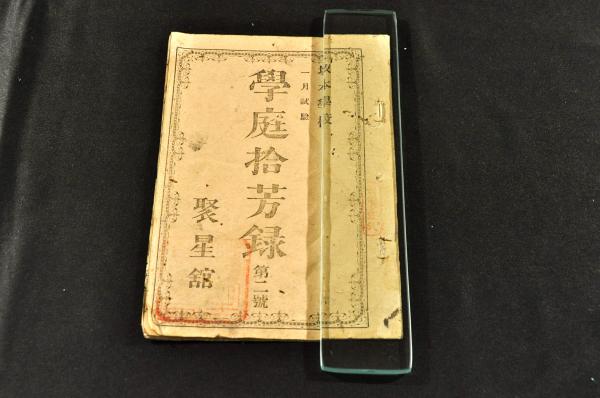 坂本學校
一月試驗
學庭拾芳録 第二號
聚星舘